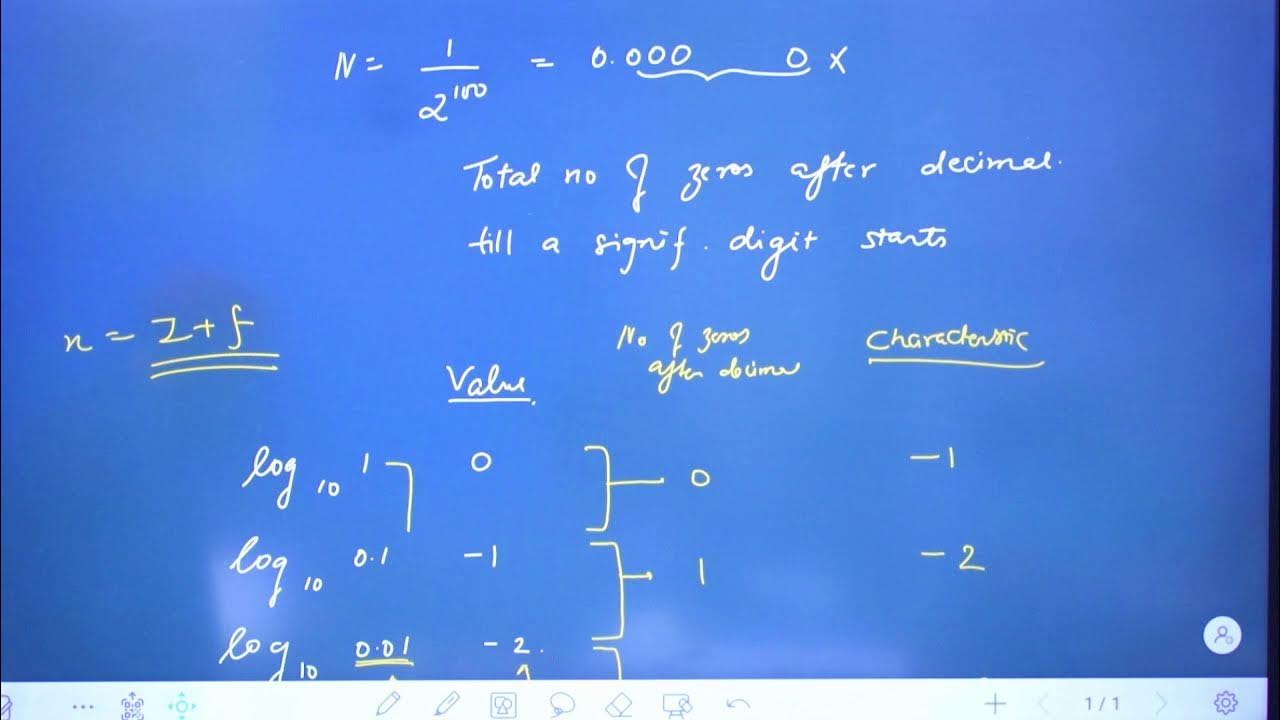 N = 1/2^100 = 0.000 0 x
Total no of zeros after decimal.
till a signif. digit starts
n = I + f
Value
No of zeros after decimal
Characteristic
log10 1 0 0 -1
log10 0.1 -1 1 -2
log10 0.01 -2.
1 / 1